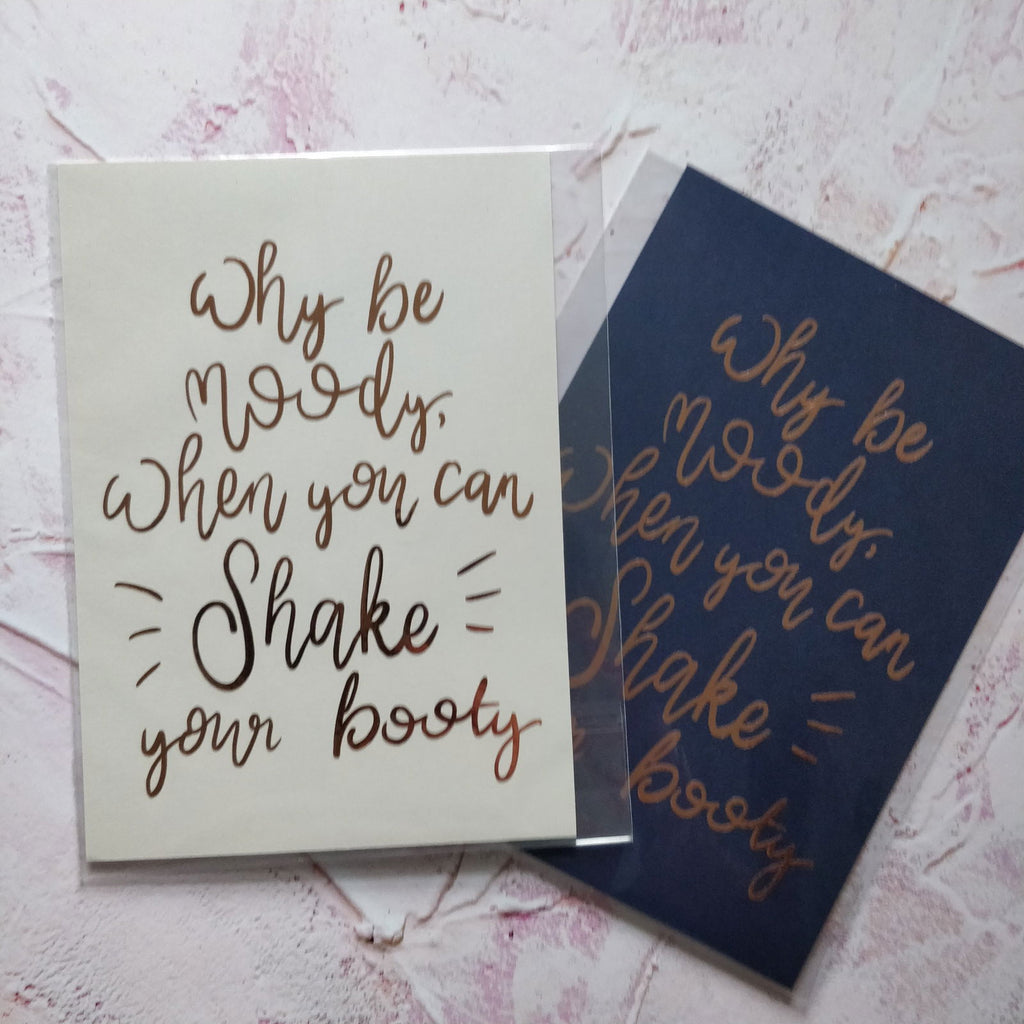 Why be
Moody,
When you can
Shake
your booty
Why be
Moody,
When you can
Shake
booty